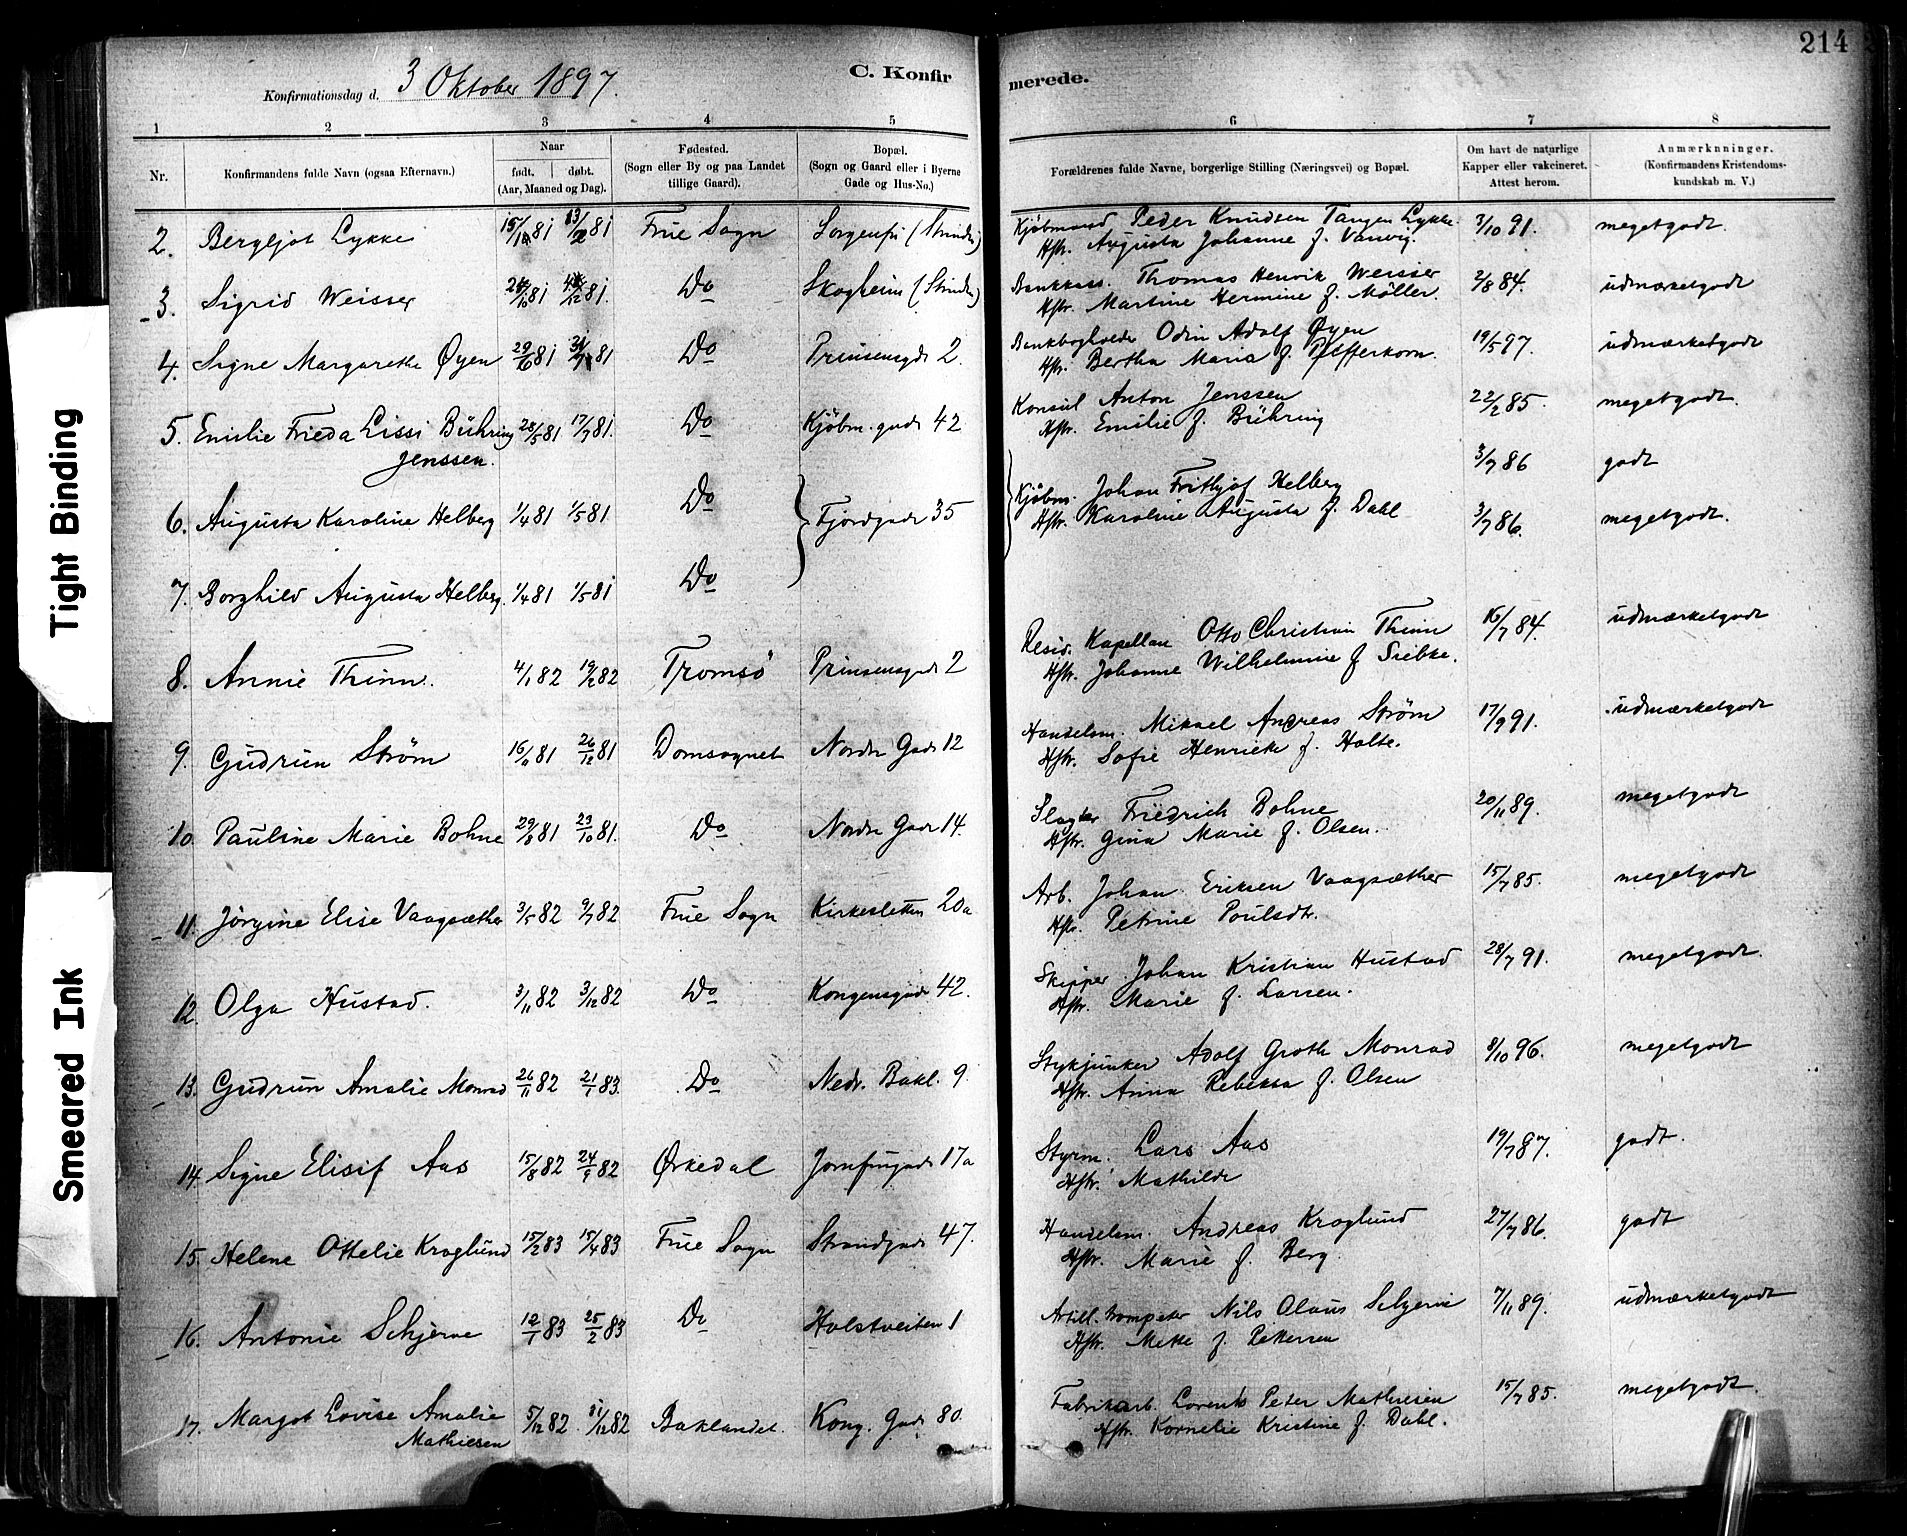 214
Konfirmationsdag d. 3 Oktober 1897.
C. Konfirmerede.
1 2 3 4 5 6 7 8
Nr.
Konfirmandens fulde Navn (ogsaa Efternavn).
Naar
født. døbt.
(Aar, Maaned og Dag).
Fødested.
(Sogn eller By og paa Landet
tillige Gaard).
Bopæl.
(Sogn og Gaard eller i Byerne
Gade og Hus-No.)
Forældrenes fulde Navne, borgerlige Stilling (Næringsvei) og Bopæl.
Om havt de naturlige
Kapper eller vakcineret.
Attest herom.
Anmærknninger.
(Konfirmandens Kristendoms-
kundskab m. V.)
2. Bergljot Lykke 81 81 Frue Sogn Sorgenfri (Strinden) Kjøbmand Peder Knudsen Tangen Lykke. 3/10 91. megetgodt.
Hstr. Augusta Johanne f. Vanvig.
3. Sigrid Weisser 81 81. Do Skogheim (Strinden) Bankkass. Thomas Henrik Weisser 2/8 84. udmærketgodt
Hstr. Martine Hermine f. Möller.
4. Signe Margarethe Øyen 29/6 81 81 Do Prinsensgade 2. Bankbogholder Odin Adolf Øyen 19/5 97. udmærketgodt
Hstr. Bertha Maria f. Pfefferkorn.
5. Emilie Frieda Lissi Bühring 28/5 81 17/7 81. Do Kjöbm. gade 42 Konsul Anton Jenssen 22/2 85. megetgodt.
Jenssen. Hstr. Emilie f. Bühring
6. Augusta Karoline Helberg 1/4 81 1/5 81 Do Fjordgade 35 Kjöbm. Johan Frithjof Helberg 3/7 86 godt
Hstr. Karoline Augusta f. Dahl
7. Borghild Augusta Helberg. 1/4 81 1/5 81 Do 3/7 86. megetgodt.
8. Annie Thinn. 4/1 82 19/2 82 Tromsö Prinsensgade 2 Resid. Kapellan Otto Christian Thinn 16/7 84. udmærketgodt
Hstr. Johanne Wilhelmine f. Siebke.
9. Gudrun Strøm 16/11 81 26/12 81 Domsognet Nordre Gade 12 Handelsm. Mikael Andreas Strøm 17/9 91. udmærketgodt
Hstr. Sofie Henrieke f. Holte.
10. Pauline Marie Bohne 29/8 81 23/10 81. Do Nordre Gade 14. Slagter Friedrich Bohne 20/11 89. megetgodt
Hstr. Gina Marie f. Olsen.
11. Jörgine Elise Vaagsæther 3/5 82 9/7 82 Frue Sogn Kirkesletten 20a Arb. Johan Eriksen Vaagsæther 15/7 85. megetgodt
Hstr. Petrine Poulsdtr.
12. Olga Hustad. 3/11 82 3/12 82 Do Kongensgade 42. Skipper Johan Kristian Hustad 28/7 91. megetgodt.
Hstr. Marie f. Larsen.
13. Gudrun Amalie Monrad 26/11 82 21/1 83. Do Nedr. Bakl. 9. Stykjunker Adolf Groth Monrad 8/10 96. megetgodt
Hstr. Anna Rebekka f. Olsen
14. Signe Elisif Aas 15/8 82 24/9 82 Ørkedal Jomfrugade 17a Styrm. Lars Aas 19/7 87. godt.
Hstr. Mathilde
15. Helene Ottelie Kroglund 15/2 83 15/4 83 Frue Sogn Strandgade 47. Handelsm. Andreas Kroglund 27/7 86. godt
Hstr. Marie f. Berg.
16. Antonie Schjerve 12/1 83 25/2 83 Do Holstveiten 1 Artill. trompeter Nils Olaus Schjerve 7/11 89. udmærketgodt
Hstr. Mette f. Pettersen
17. Margot Lovise Amalie 5/12 82 31/12 82 Baklandet. Kong. Gade 80. Fabrikarb. Lorents Peter Mathiesen 15/7 85. megetgodt.
Mathiesen Hstr. Kornelie Kristine f. Dahl.
Tight Binding
Smeared Ink